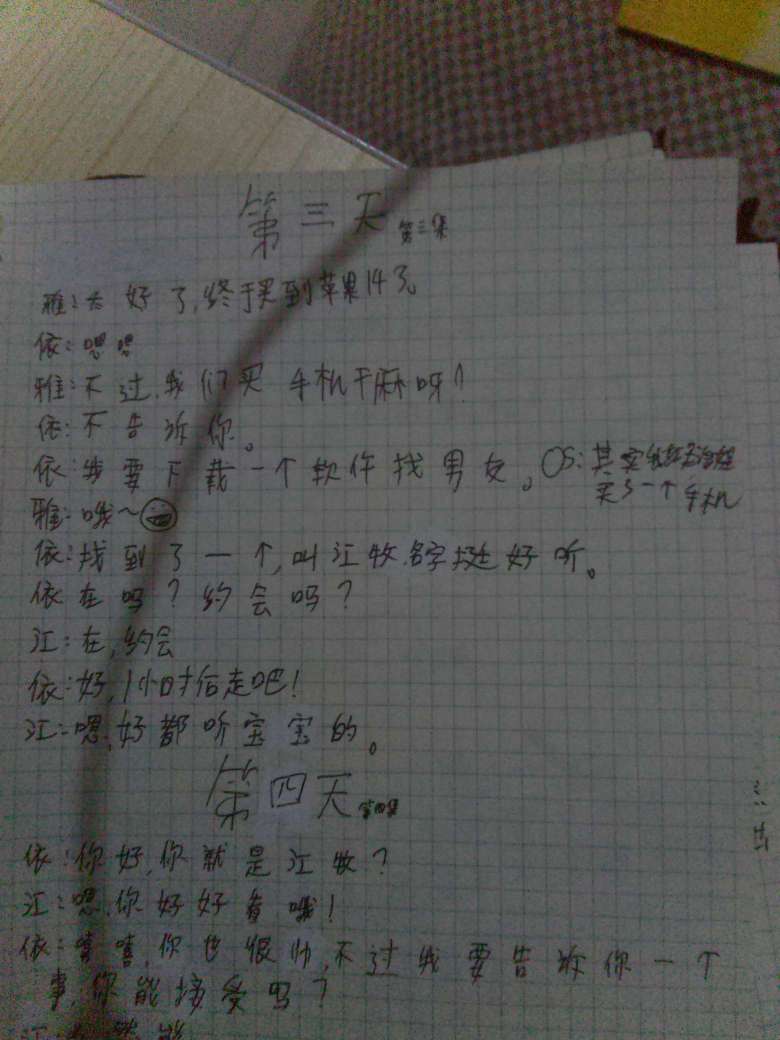 第三天 第三集
雅:太好了,终于买到苹果14了。
依:嗯嗯
雅:不过,我们买手机干麻呀?
依:不告诉你。
依:我要下载一个软件找男友。OS:其实
买了一个手机
雅:哦~
依:找到了一个,叫江牧,名字挺好听。
依:在吗?约会吗?
江:在,约会
依:好,1小时后走吧!
江:嗯,好都听宝宝的。
第四天 第四集
依:你好,你就是江牧?
江:嗯,你好好看哦!
依:嘻嘻,你也很帅,不过我要告诉你一个
事,你能接受吗?